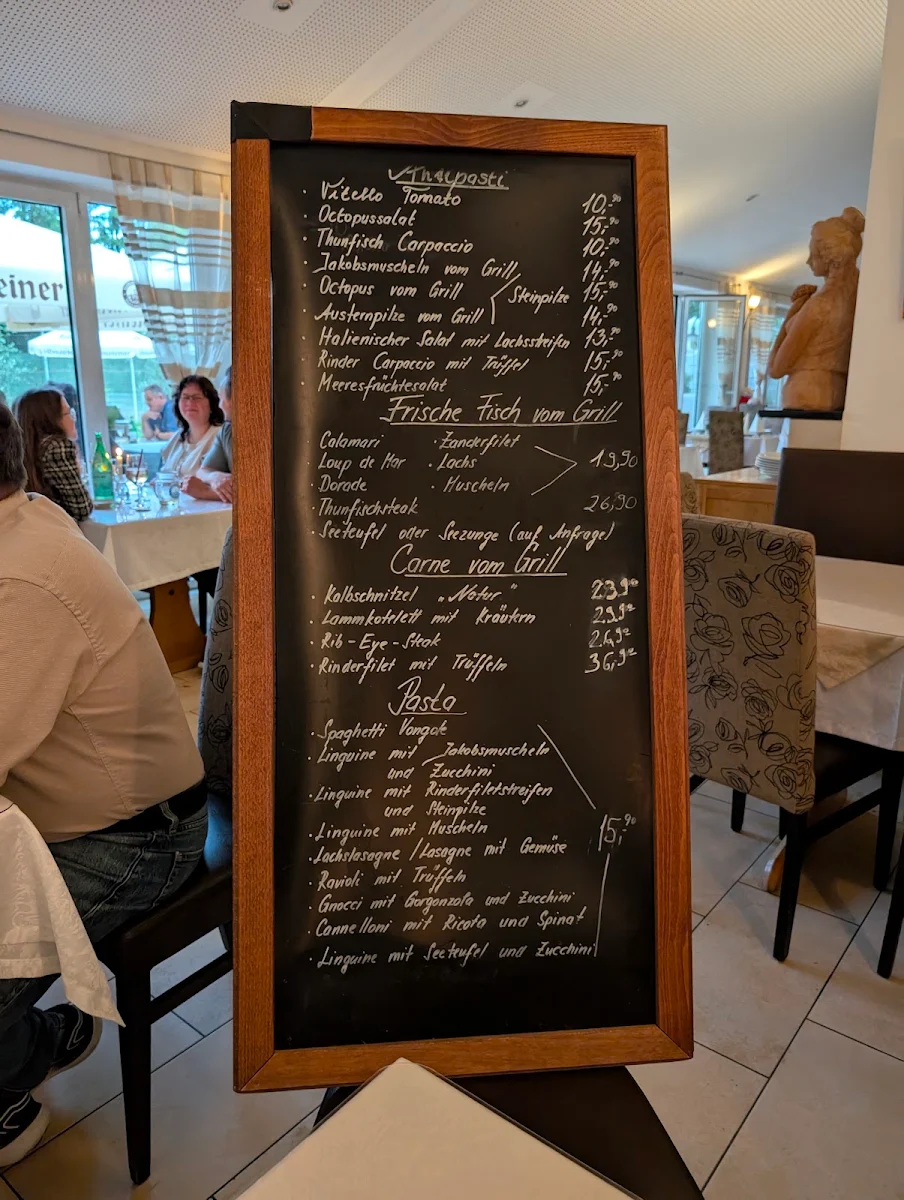 einer
Antipasti
· Vitello Tomato 10,90
· Octopussalat 15,90
· Thunfisch Carpaccio 10,90
· Jakobsmuscheln vom Grill 14,90
· Octopus vom Grill 15,90
Steinpilze
· Austernpilze vom Grill 14,90
· Italienischer Salat mit Lachsstreifen 13,90
· Rinder Carpaccio mit Trüffel 15,90
· Meeresfrüchtesalat 15,90
Frische Fisch vom Grill
· Calamari · Zanderfilet
· Loup de Mar · Lachs 19,90
· Dorade · Muscheln
· Thunfischsteak 26,90
· Seeteufel oder Seezunge (auf Anfrage)
Carne vom Grill
· Kalbschnitzel „Natur" 23,90
· Lammkotelett mit Kräutern 29,90
· Rib-Eye-Steak 26,90
· Rinderfilet mit Trüffeln 36,90
Pasta
· Spaghetti Vongole
· Linguine mit Jakobsmuscheln
und Zucchini
· Linguine mit Rinderfiletstreifen
und Steinpilze
· Linguine mit Muscheln 15,90
· Lachslasagne / Lasagne mit Gemüse
· Ravioli mit Trüffeln
· Gnocci mit Gorgonzola und Zucchini
· Cannelloni mit Ricota und Spinat
· Linguine mit Seeteufel und Zucchini